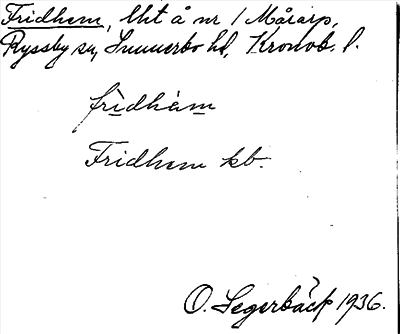 Fridhem, lht å nr 1 Måraip,
Ryssby sn, Sunnerbo hd, Kronob. l.
frìdhám
Fridhem kb.
O. Segerbäck 1936.